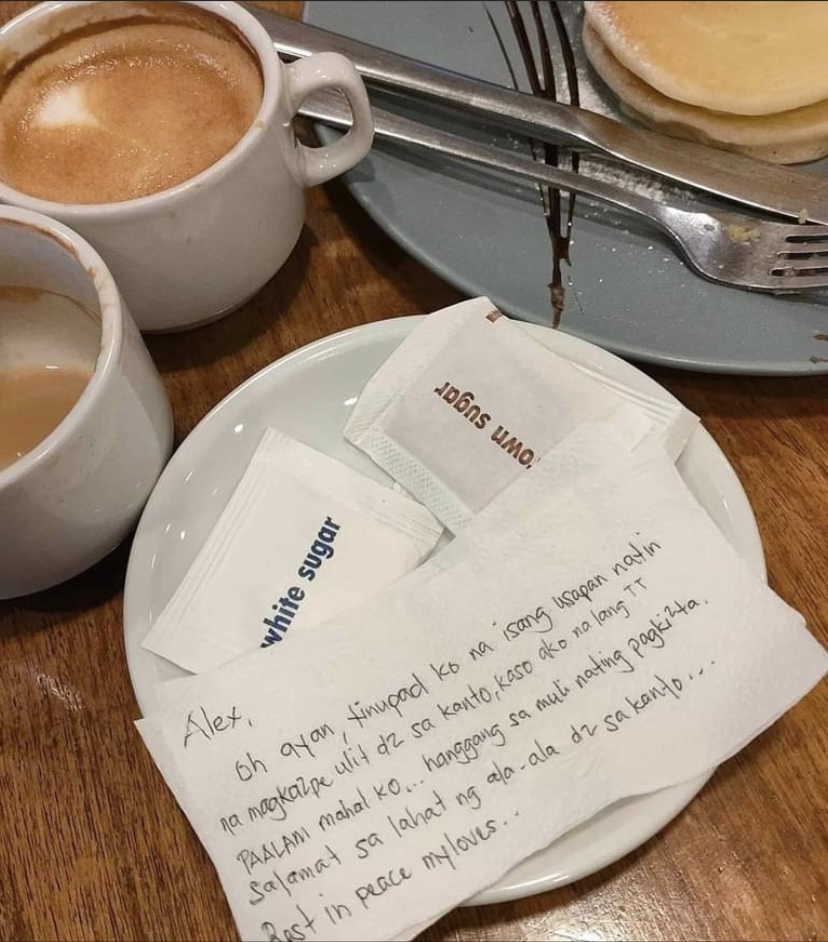 own sugar
white sugar
Alex,
Oh ayan, tinupad ko na isang usapan natin
na magka2pe ulit d2 sa kanto, kaso ako na lang TT
PAALAM mahal ko... hanggang sa muli nating pagki2ta.
Salamat sa lahat ng ala-ala d2 sa kanto...
Rest in peace myloves..